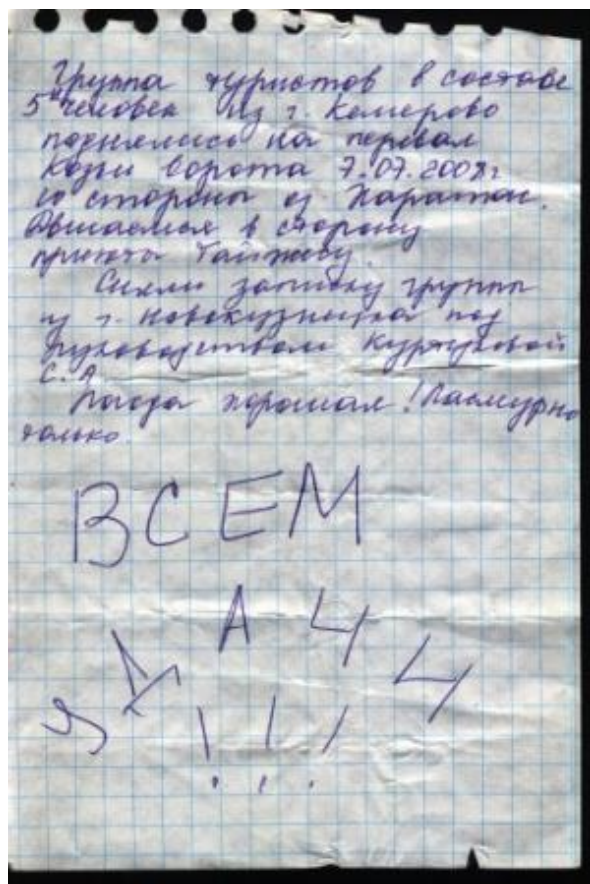 Группа туристов в составе
5 человек из г. Кемерово
поднялись на перевал
Козьи ворота 7.07.2007г
со стороны оз. Харатас.
Двигаемся в сторону
приюта Тайжесу.
Сняли записку группы
из г. Новокузнецка под
руководством Куртуковой
С.А.
Погода хорошая! Пасмурно
только.
ВСЕМ
УДАЧЧ
!!!